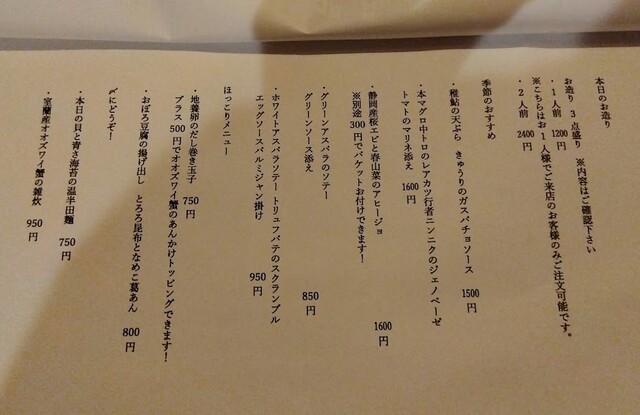 本日のお造り
お造り 3点盛り ※内容はご確認下さい
・1人前 1200円
※こちらはお1人様でご来店のお客様のみご注文可能です。
・2人前 2400円
季節のおすすめ
・稚鮎の天ぷら きゅうりのガスパチョソース 1500円
・本マグロ中トロのレアカツ行者ニンニクのジェノベーゼ
トマトのマリネ添え 1600円
・静岡産桜エビと春山菜のアヒージョ 1600円
※別途300円でバケットお付けできます!
・グリーンアスパラのソテー
グリーンソース添え 850円
・ホワイトアスパラソテー トリュフパテのスクランブル
エッグソースパルミジャン掛け 950円
ほっこりメニュー
・地養卵のだし巻き玉子 750円
プラス500円でオオズワイ蟹のあんかけトッピングできます!
・おぼろ豆腐の揚げ出し とろろ昆布となめこ葛あん 800円
〆にどうぞ!
・本日の貝と青さ海苔の温半田麺 750円
・室蘭産オオズワイ蟹の雑炊 950円